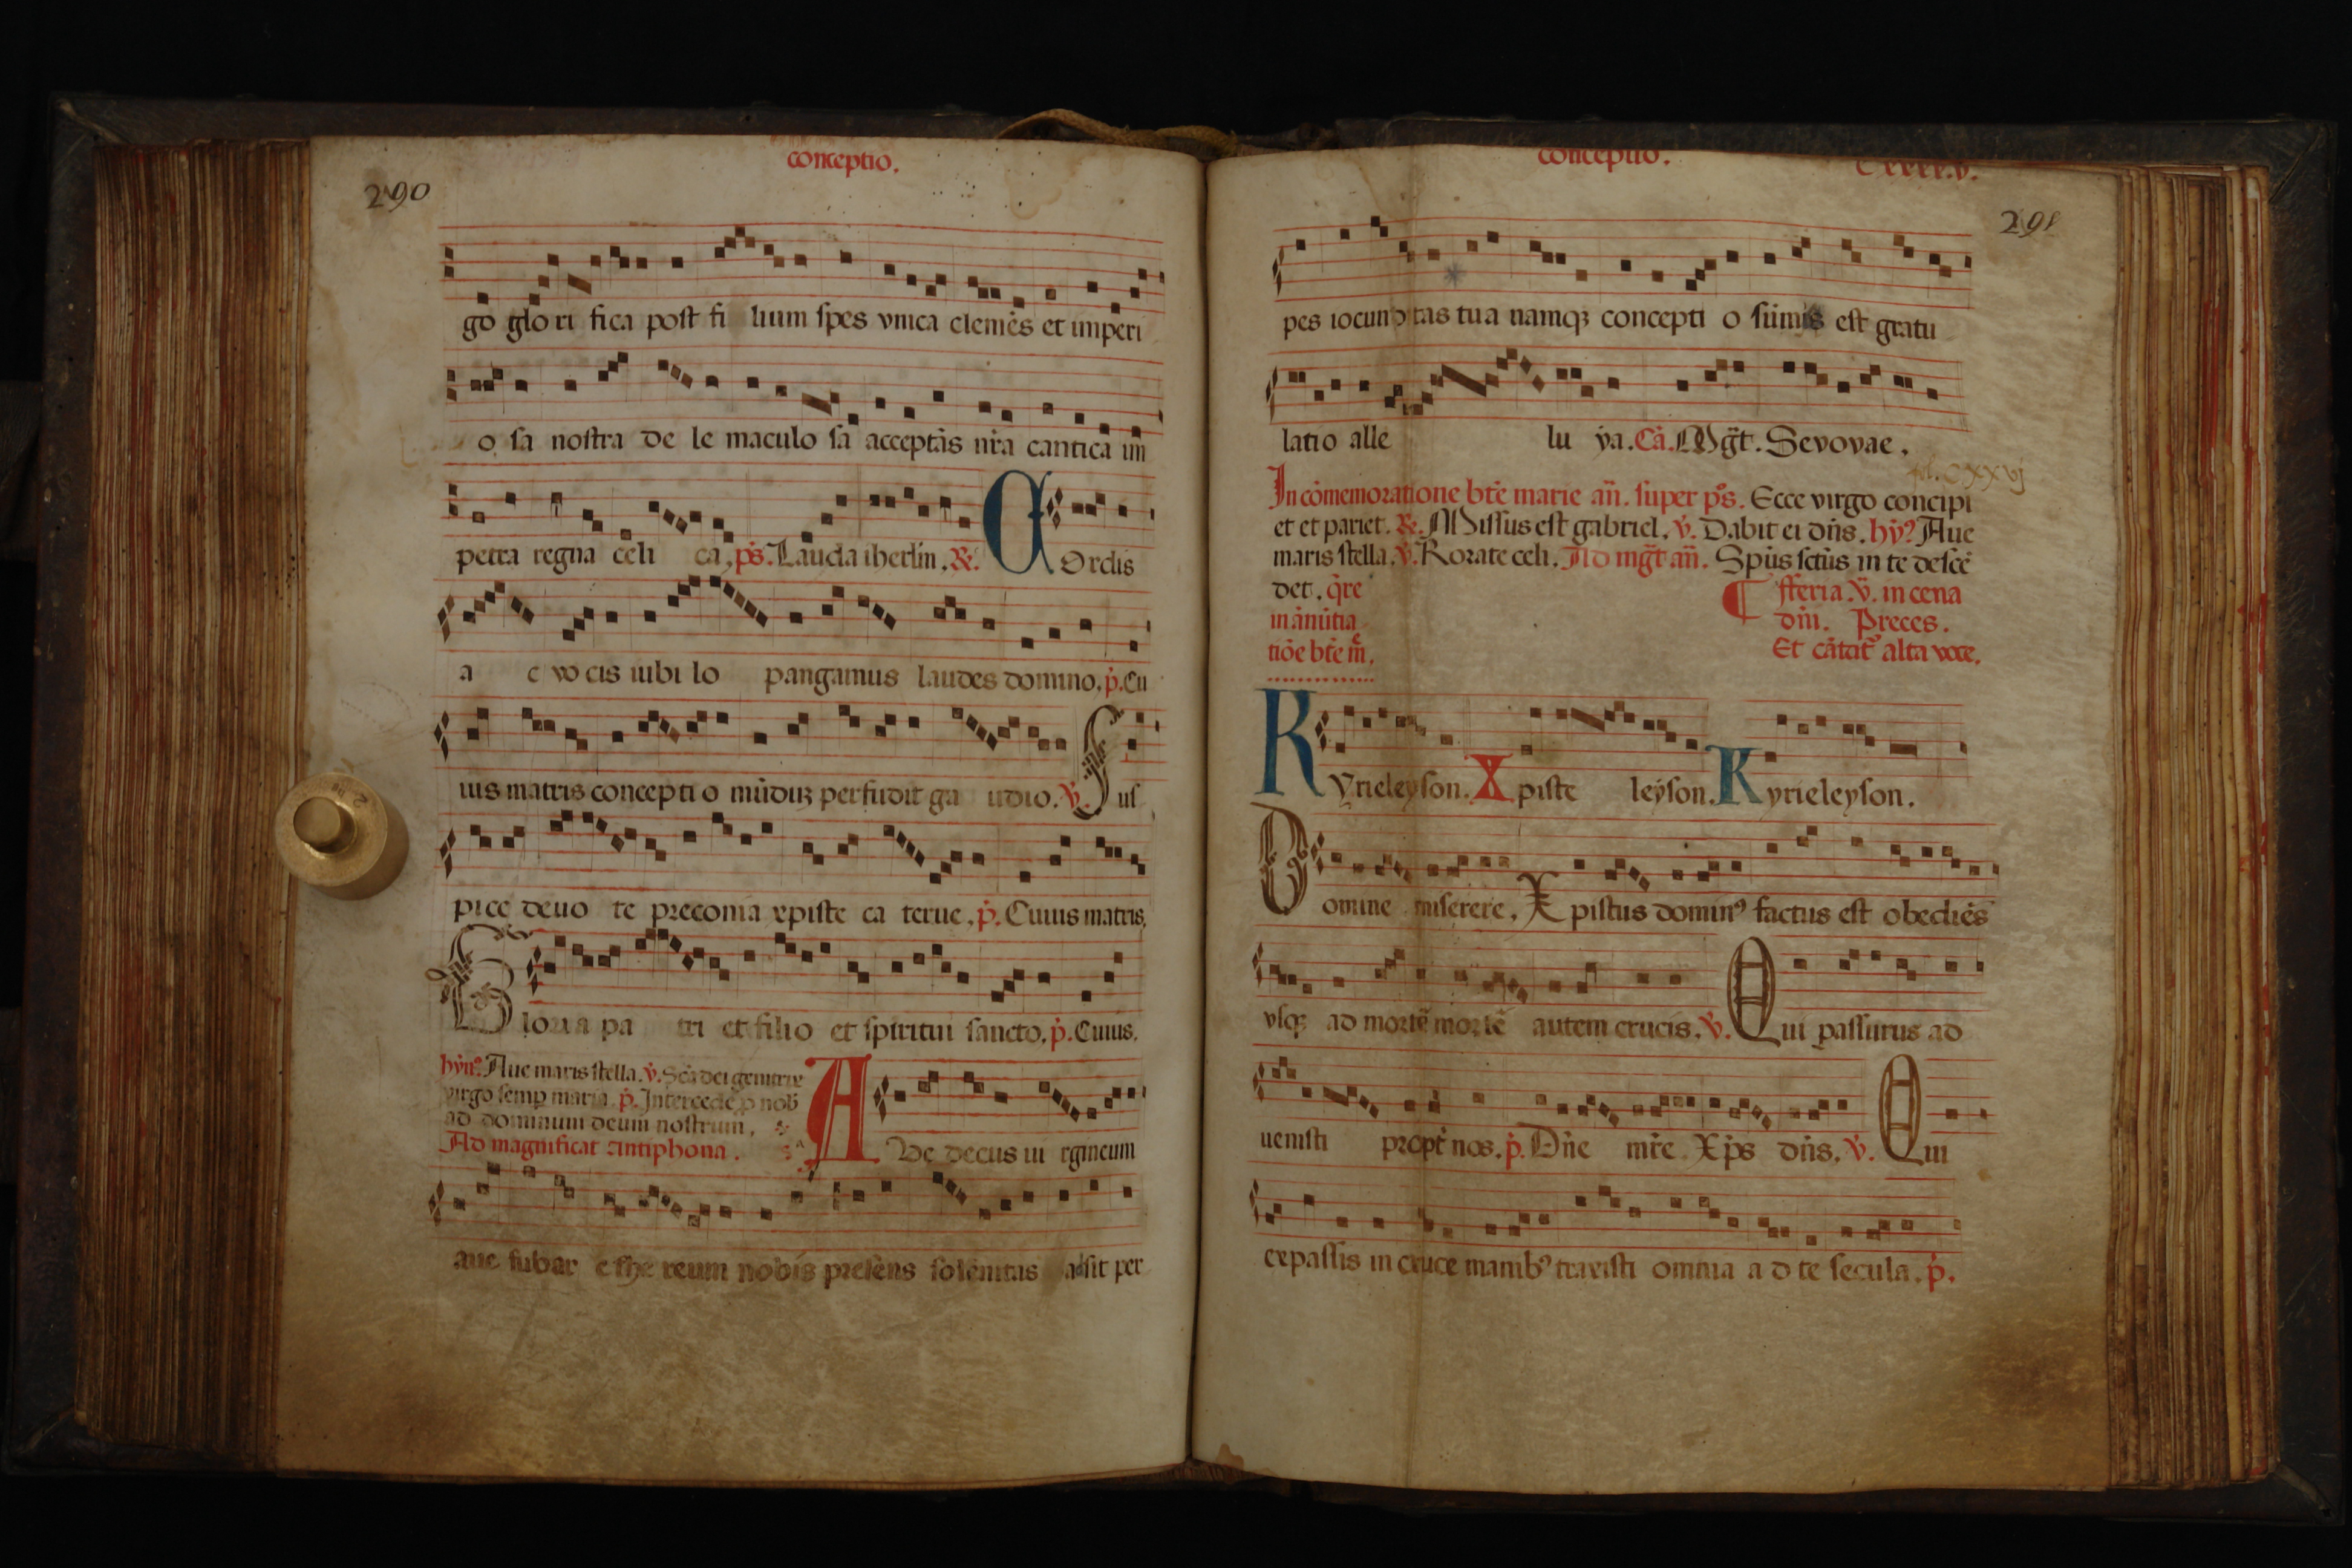 conceptio.
290
go glo ri fica post fi lium spes vnica clemēs et imperi
o sa nostra de le maculo sa acceptās nr̄a cantica im
petra regna celi ca, ps̄. Lauda iherlm̄. ℟. COrdis
a c vo cis iubi lo pangamus laudes domino, p̄. Cu
ius matris concepti o mūdūꝫ perfudit ga udio. v̄. Sus
pice deuo te preconia xpiste ca terue, p̄. Cuius matris,
Gloria pa tri et filio et spiritui sancto, p̄. Cuius.
hȳnꝰ. Aue maris stella. v̄. Scā dei genitrix
virgo semp maria. p̄. Intercede ꝓ nob̄
ad dominum deum nostrum,
Ad magnificat antiphona.
AVe decus ui rgineum
aue iubar ethe reum nobis presēns solēnitas adsit per
conceptio.
Cxxxx.v.
291
pes iocundtas tua namqꝫ concepti o sūmis est gratu
latio alle lu ya. Cā. Mḡt. Sevovae.
fol. CXXVJ
In cōmemoratione btē marie an̄. super ps̄. Ecce virgo concipi
et et pariet. ℟. Missus est gabriel. v̄. Dabit ei dn̄s. hȳ? Aue
maris stella. v̄. Rorate celi. Ad mḡt an̄. Spūs sctūs in te descē
det. q̄re
in ānūtia
tiōe btē m̄.
¶ fferia. v̄. in cena
dn̄i. Preces.
Et cātat᷑ alta voce.
Kyrieleyson. Xpiste leyson. Kyrieleyson.
Domine miserere, Xpistus dominꝰ factus est obediēs
vsqꝫ ad mortē mortē autem crucis. v̄. Qui passurus ad
uenisti propt̄ nos. p̄. Dn̄e mr̄e Xp̄s dn̄s. v̄. Qui
expassis in cruce manibꝰ traxisti omnia a d te secula. p̄.